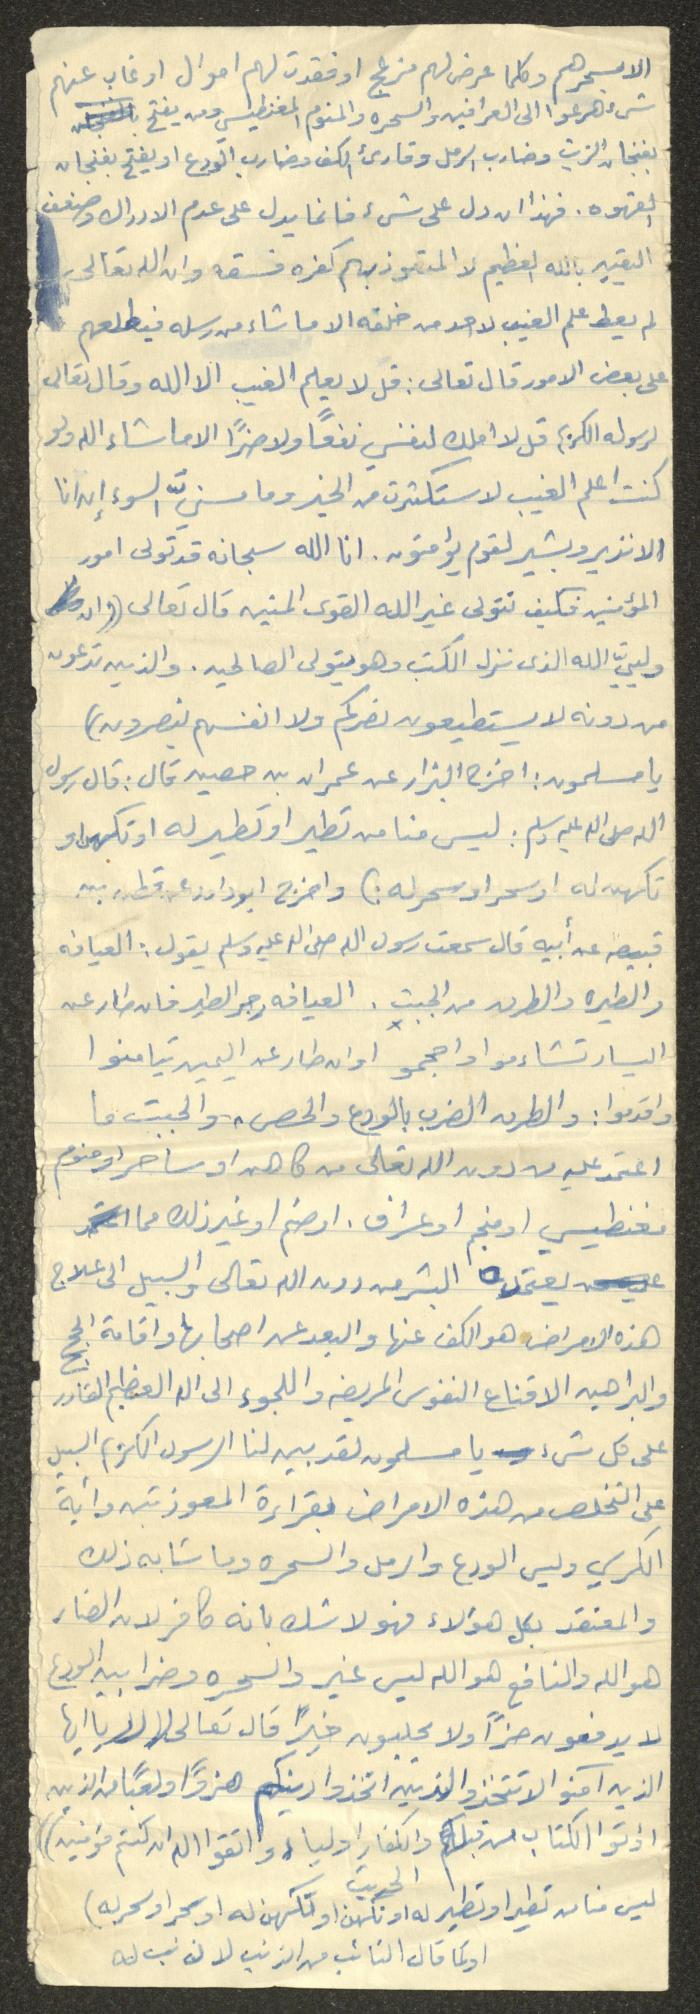 الا بسحرهم وكلما عرض لهم مزعج او فقدت لهم اموال او غاب عنهم
شيء هرعوا الى العرافين والسحره والمنوم المغنطيسي ومن يفتح بالفنجان
بفنجان الزيت وضارب الرمل وقارئ الكف وضارب الودع او يفتح بفنجان
القهوه . فهذا ان دل على شيء فانما يدل على عدم الادراك وضعف
اليقين بالله العظيم لا المتعوذ بهم كفره فسقه وان الله تعالى
لم يعط علم الغيب لاحد من خلقه الا ما شاء من رسله فيطلعهم
على بعض الامور قال تعالى : قل لا يعلم الغيب الا الله وقال تعالى
لرسوله الكريم قل لا املك لنفسي نفعًا ولا ضرًا الا ما شاء الله ولو
كنت اعلم الغيب لاستكثرت من الخير وما مسنيَّ السوء إن انا
الا نذير وبشير لقوم يؤمنون . انا الله سبحانه قد تولى امور
المؤمنين فكيف نتولى غير الله القوى المتين قال تعالى (( ان
ولييَّ الله الذى نزل الكتب وهو يتولى الصالحين . والذين تدعون
من دونه لا يستطيعون نصركم ولا انفسهم ينصرون))
يا مسلمون : اخرج البزار عن عمران بن حصين قال : قال رسول
الله صلى الله عليه وسلم : ليس منا من تطير او تطير له او تكهن او
تكهن له او سحر او سحر له :) واخرج ابو داود عن قطن بن
قبيصه عن أبيه قال سمعت رسول الله صلى الله عليه وسلم يقول : العيافه
والطيره والطرق من الجبت . العيافه زجر الطير فان طار عن
اليسار تشاءموا واحجمو او ان طار عن اليمين تيامنوا
واقدموا : والطرق الضرب بالودع والحصى ، والجبت ما
اعتمد عليه من دون الله تعالى من كاهن او ساحر او منوم
مغنطيسي او منجم او عراف . او صنم او غير ذلك مما
يعتمده البشر من دون الله تعالى والسبيل الى علاج
هذه الامراض هو الكف عنها والبعد عن اصحابها واقامة الحجج
والبراهين لاقناع النفوس المريضه واللجوء الى الله العظيم القادر
على كل شيء يا مسلمون لقد بين لنا الرسول الكريم السبيل
على التخلص من هذه الامراض بقراءة المعوذتين وأية
الكرسي وليس الودع والرمل والسحره وما شابه ذلك
والمعتقد بكل هؤلاء فهو لا شك بانه كافر لان الضار
هو الله والنافع هو الله ليس غير والسحره وضرابين الودع
لا يدفعون ضرًا ولا يجلبون خيرًا قال تعالى يا ايها
الذين آمنو الا تتخذو الذين اتخذوا دينكم هزوًا ولعبًا من الذين
اؤتوا الكتاب من قبلكم والكفار اولياء واتقوا الله ان كنتم مؤمنين))
الحديث
ليس منا من تطير او تطير له او تكهن او تكهن له او سحر او سحر له)
او كما قال التائب من الذنب لا ذنب له